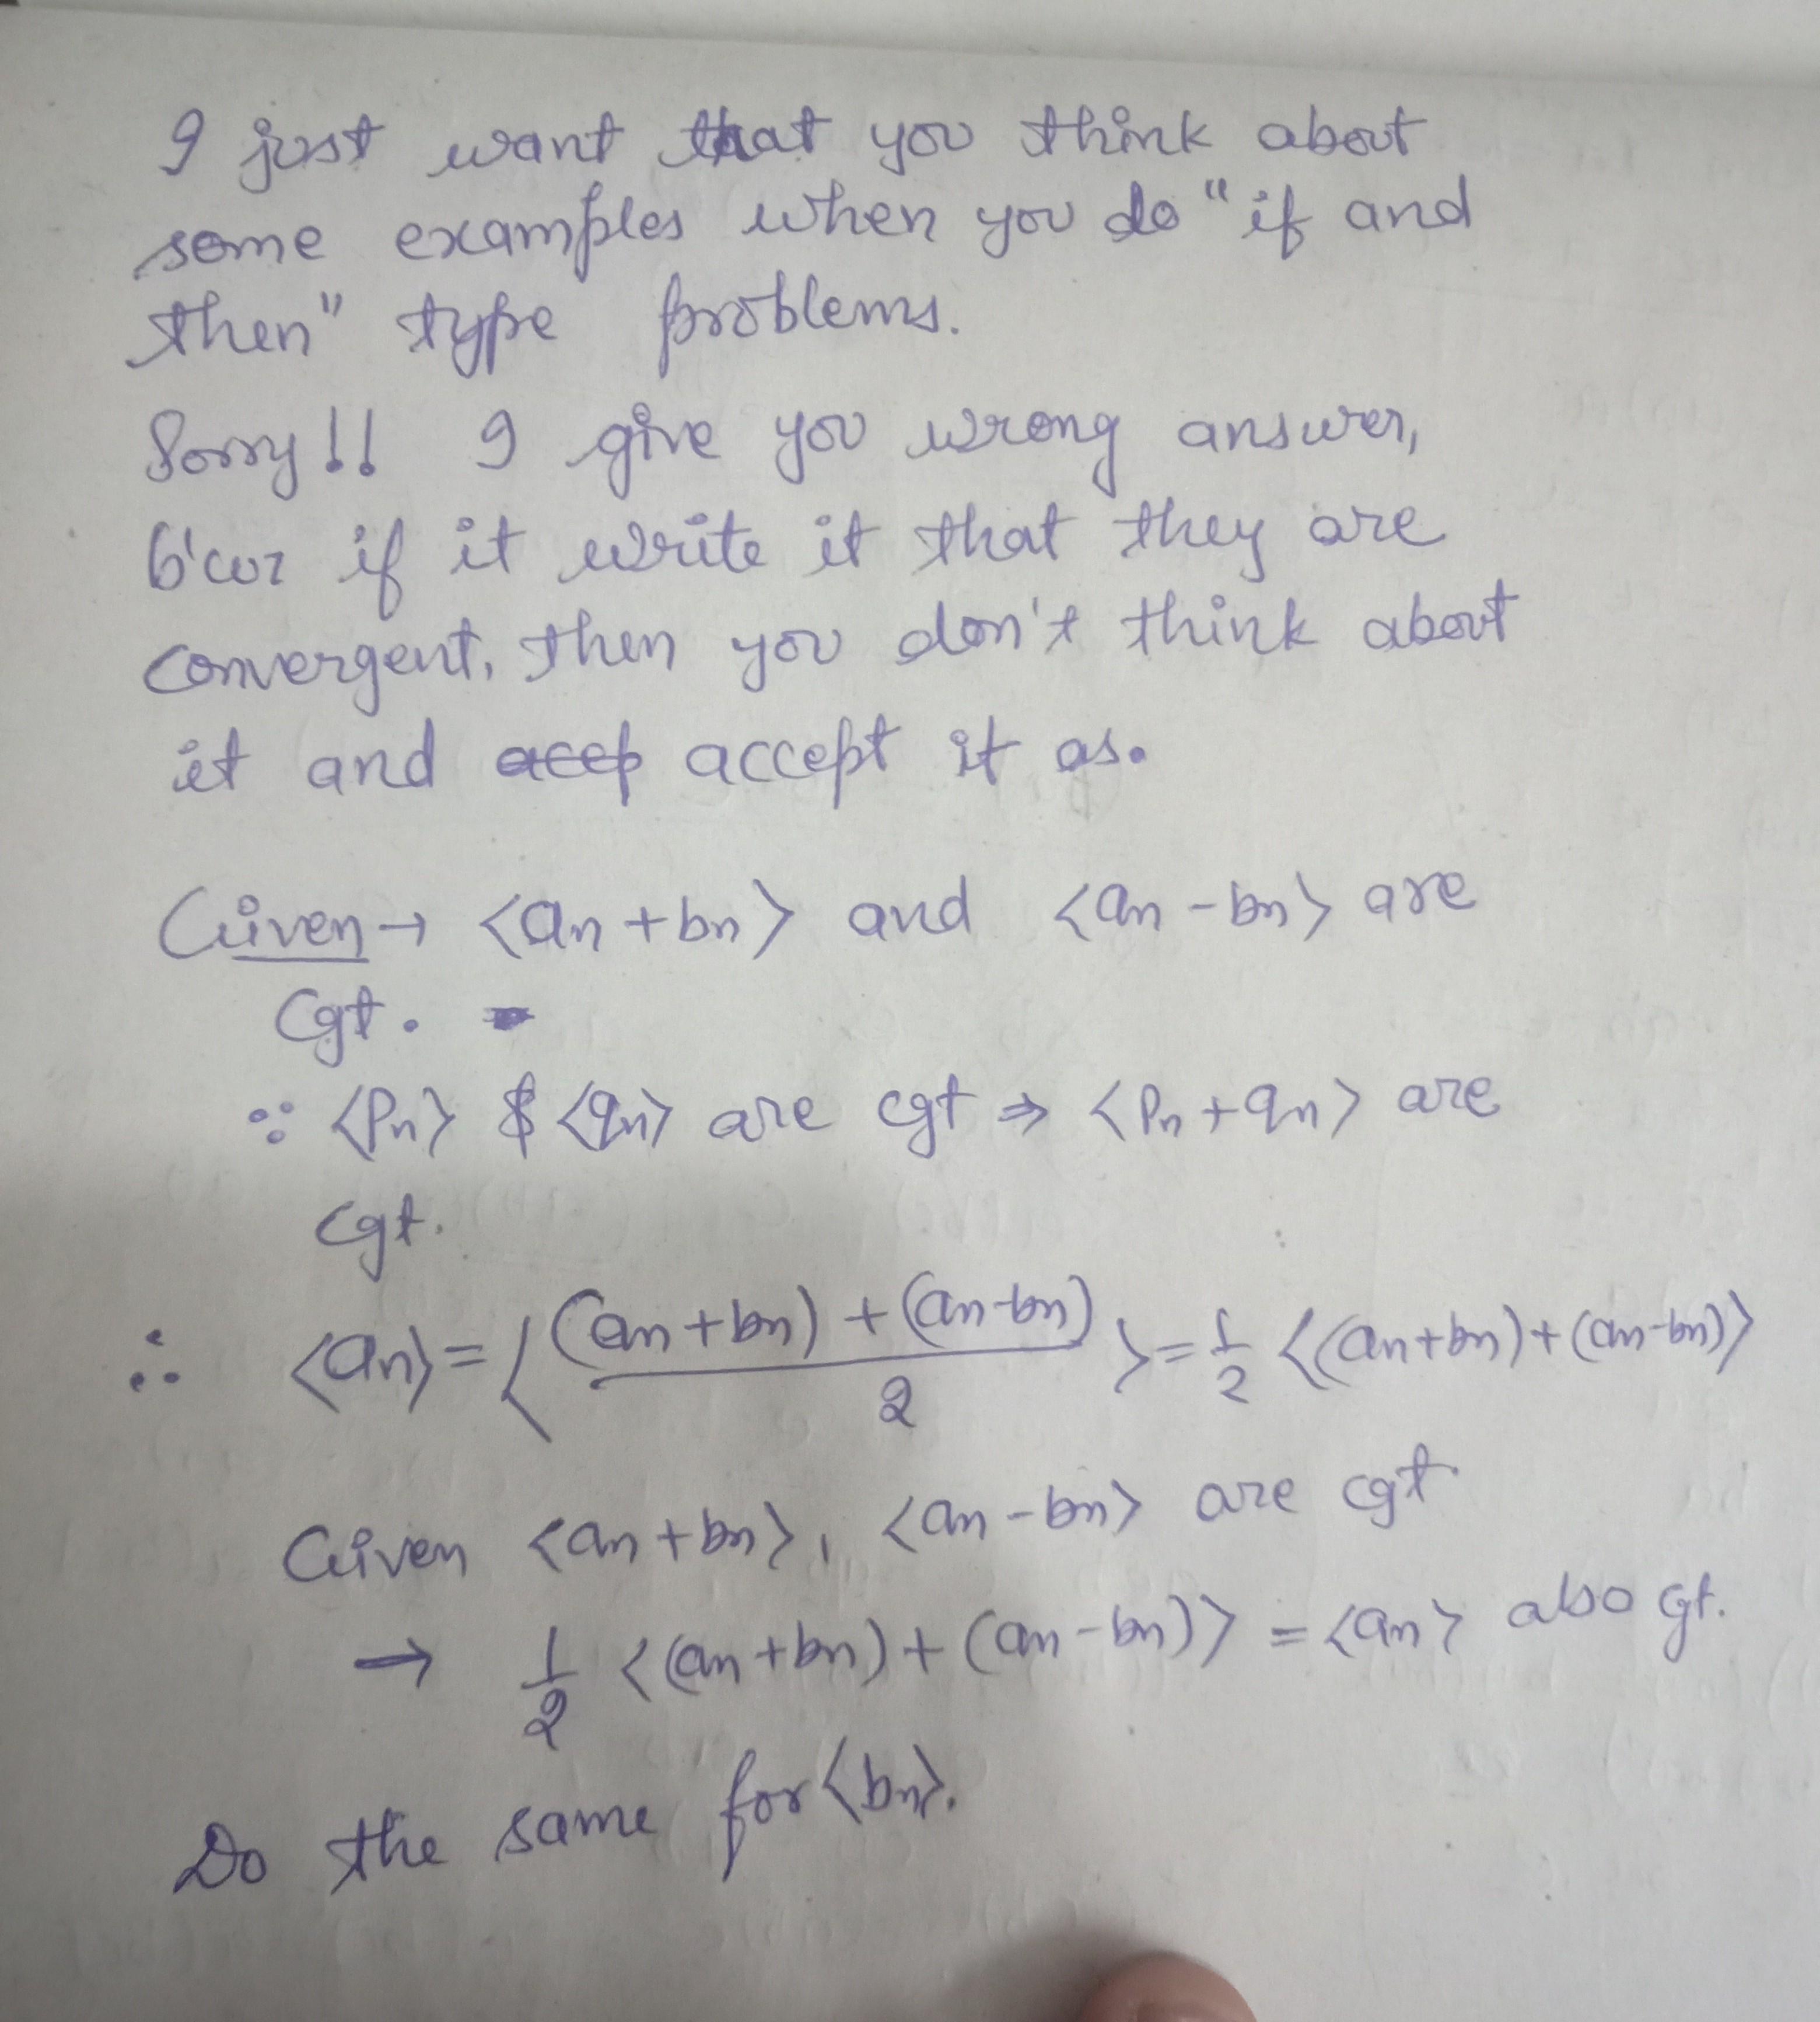 I just want that you think about
some examples when you do "if and
then" type problems.
Sorry!! I give you wrong answer,
b'coz if it write it that they are
convergent, then you don't think about
it and accep accept it as.
Given → <an + bn> and <an - bn> are
Cgt.
∵ <Pn> & <qn> are cgt ⇒ <Pn + qn> are
cgt.
∴ <an> = <(an + bn) + (an - bn) / 2> = 1/2 <(an + bn) + (an - bn)>
Given <an + bn>, <an - bn> are cgt
→ 1/2 <(an + bn) + (an - bn)> = <an> also cgt.
Do the same for <bn>.